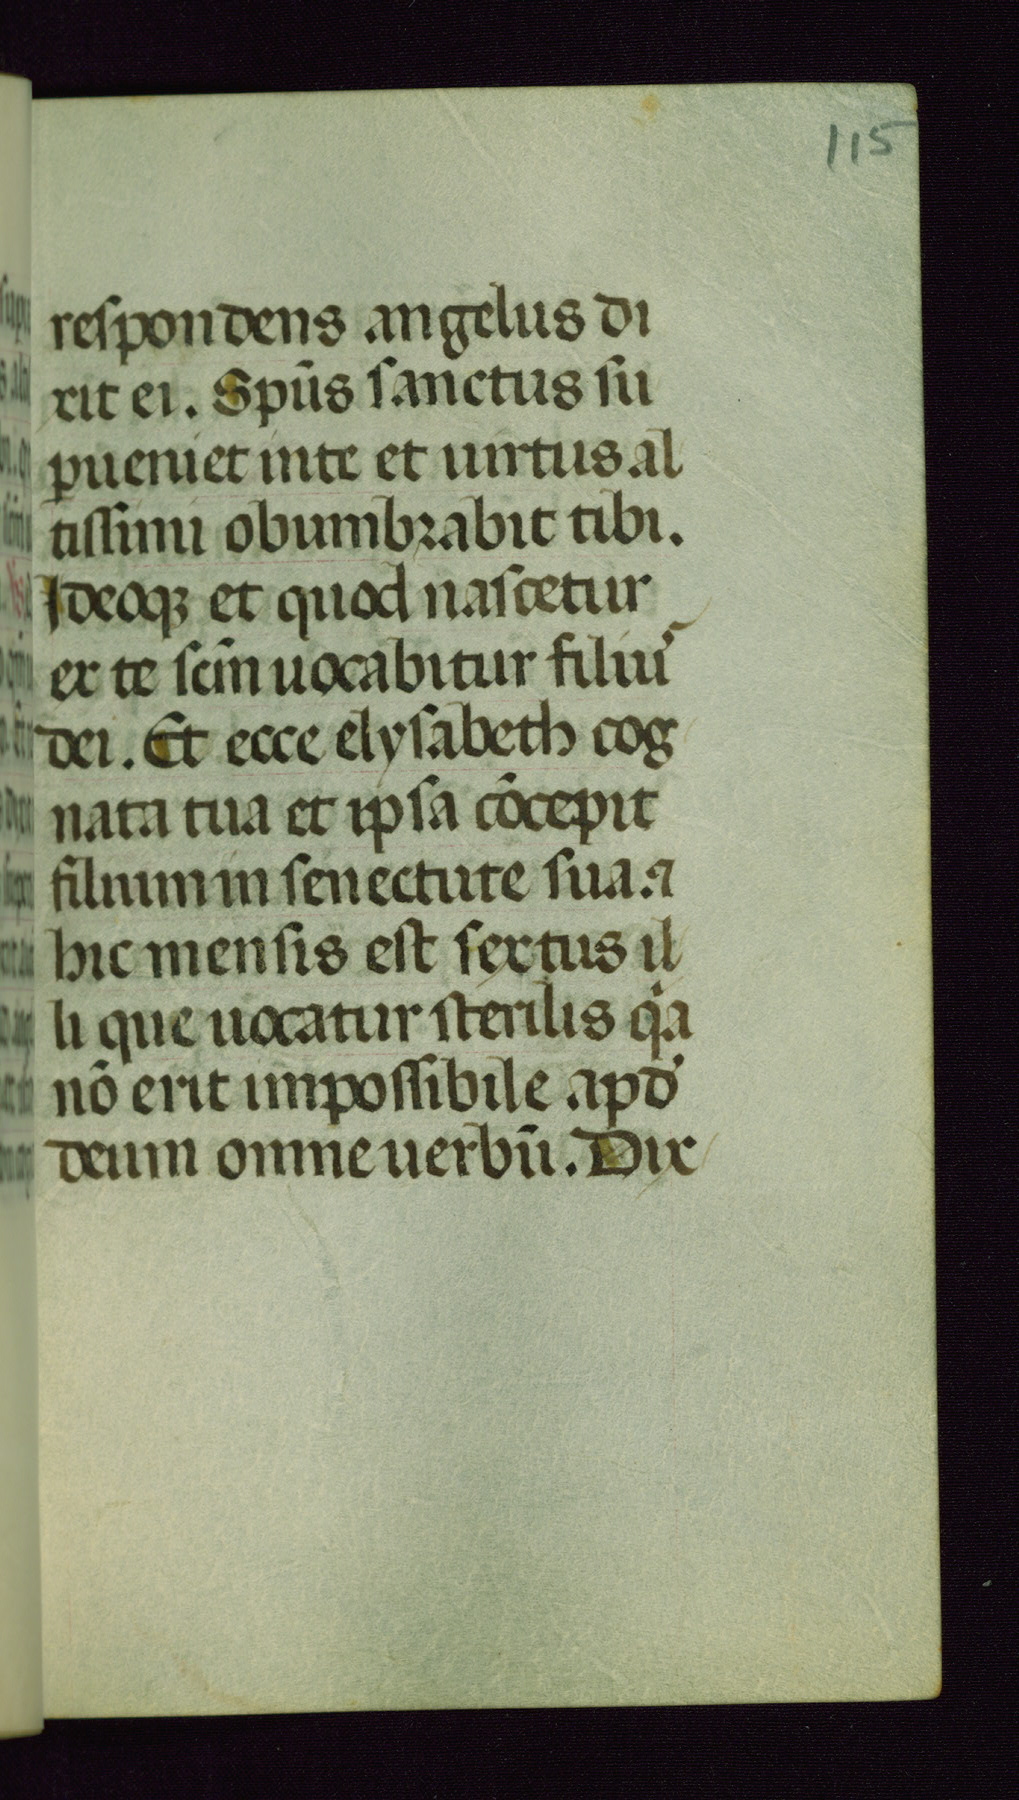 115
respondens angelus di
xit ei. Spūs sanctus su
pueniet inte et uirtus al
tissimi obumbrabit tibi.
Ideoqꝫ et quod nascetur
ex te scm̄ uocabitur filiu᷒
dei. Et ecce elysabeth cog
nata tua et ipsa cōcepit
filium in senectute sua. ⁊
hic mensis est sextus il
li que uocatur sterilis qͥa
nō erit impossibile apd̕
deum omne uerbū. Dix